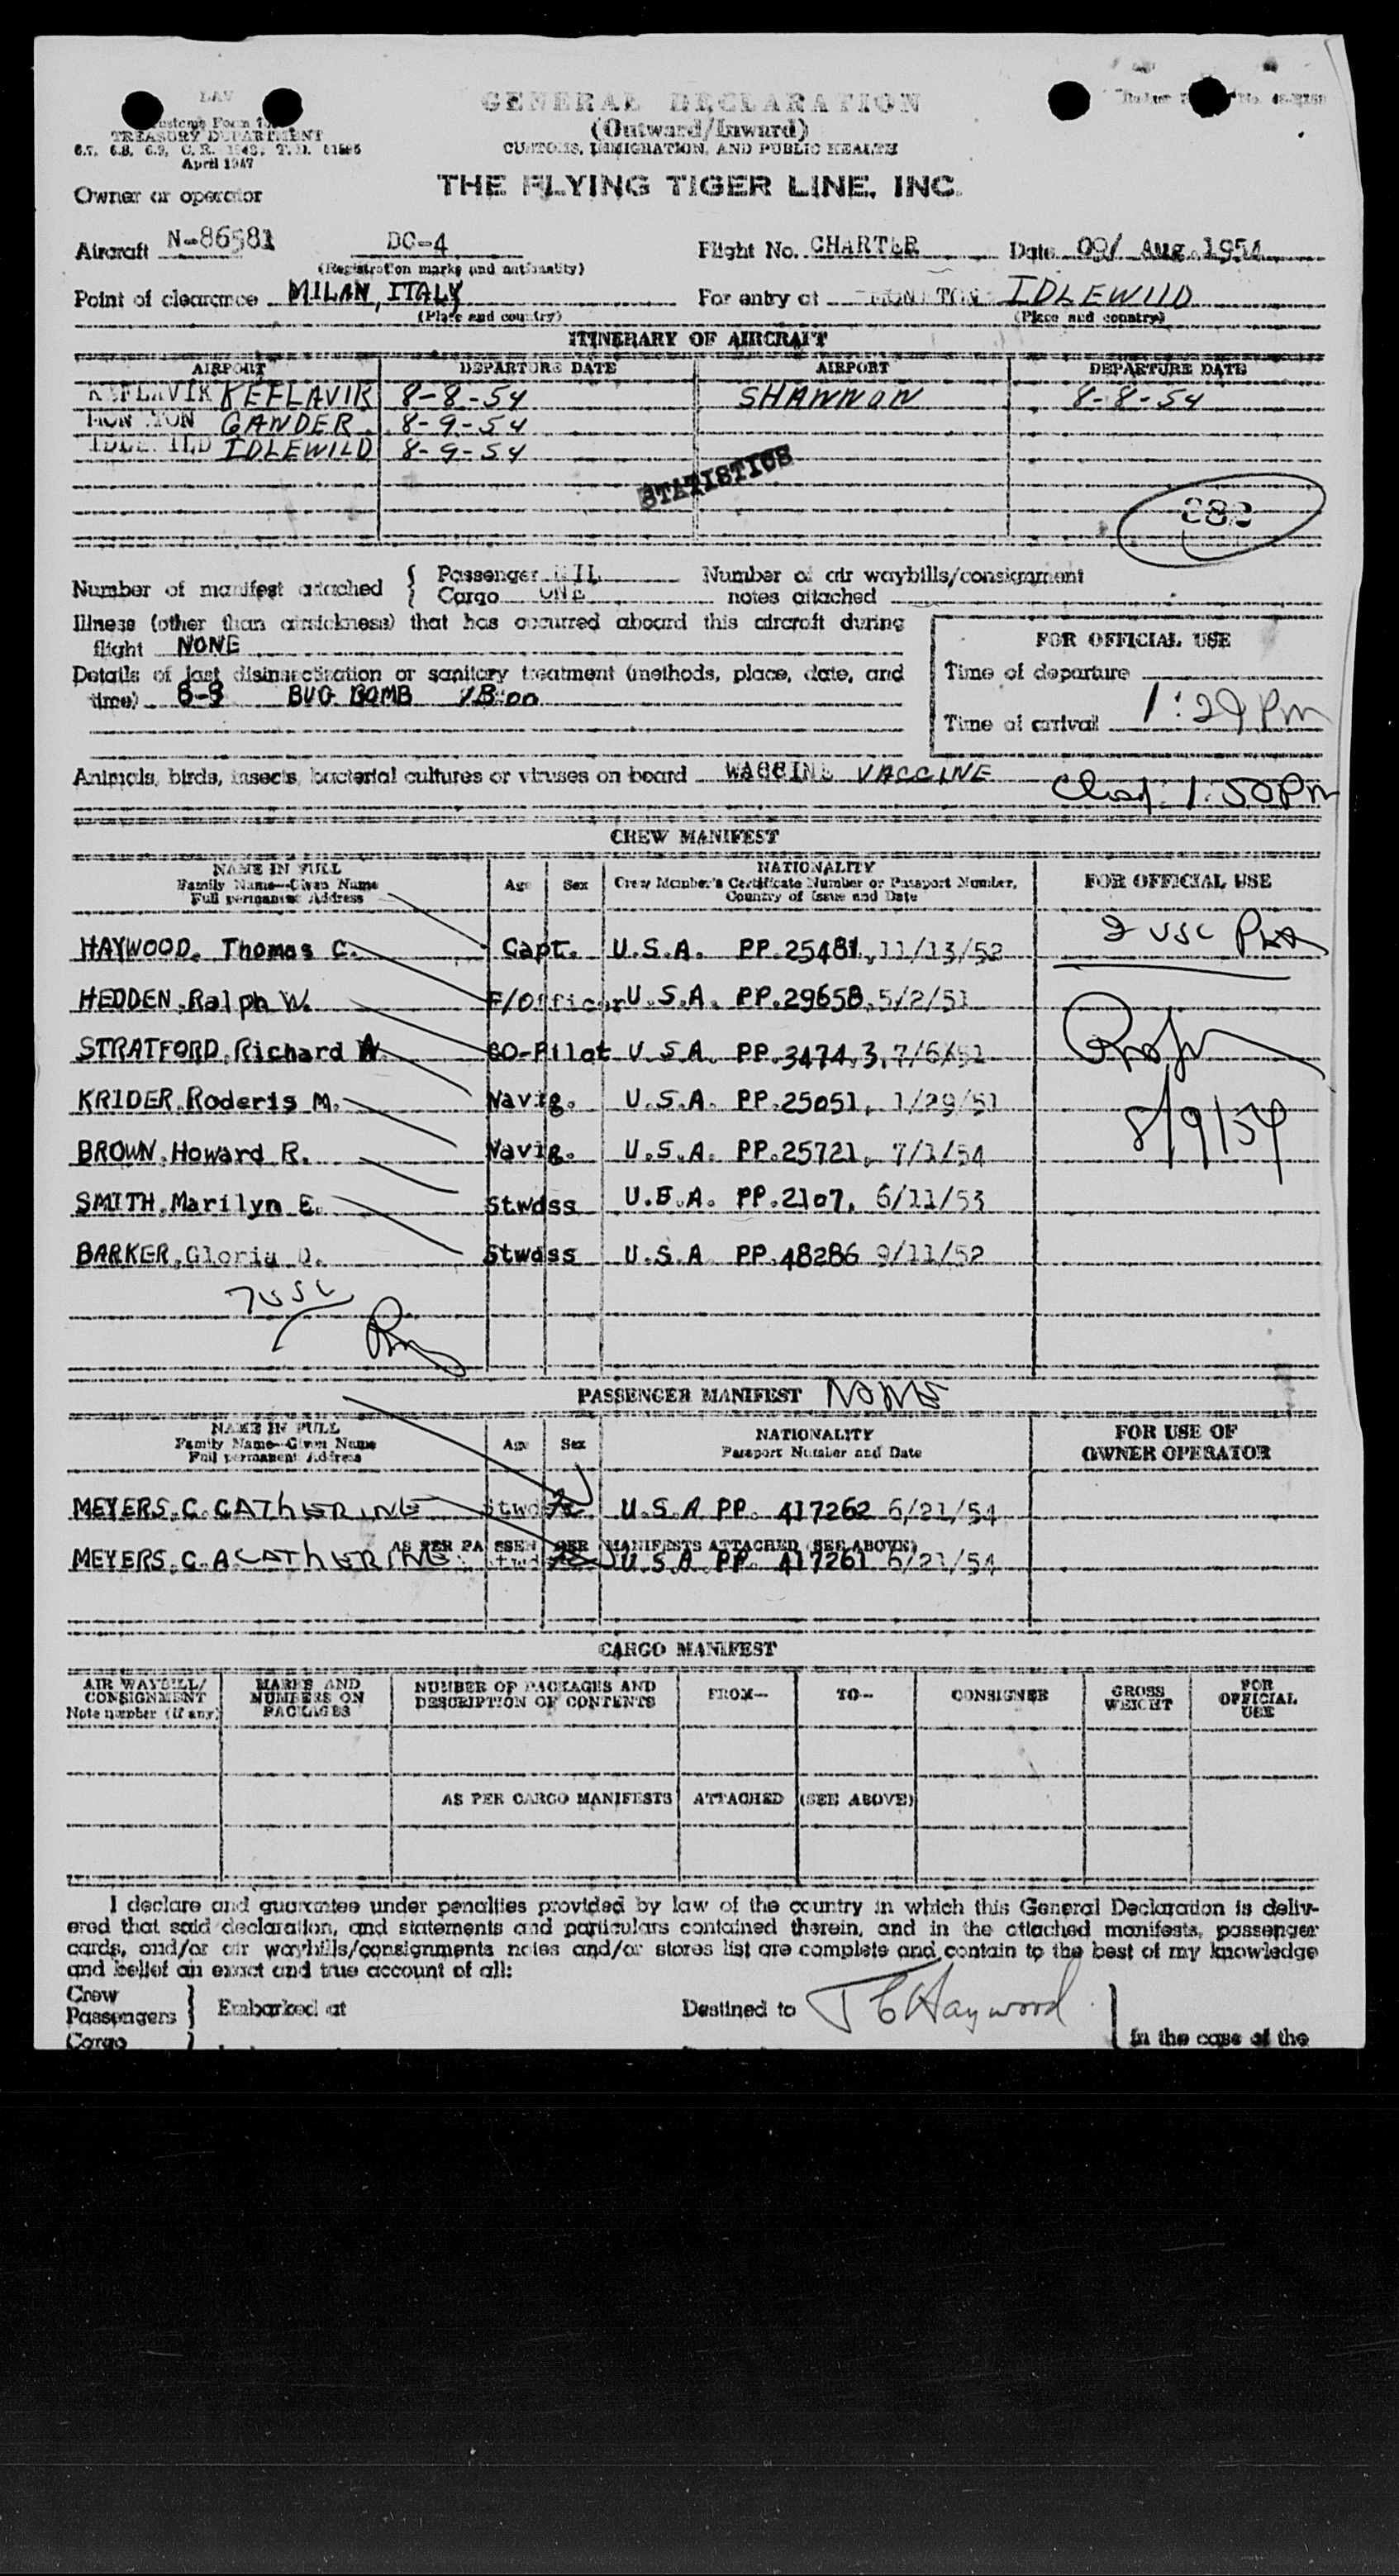 GENERAL DECLARATION
(Outward/Inward)
CUSTOMS, IMMIGRATION, AND PUBLIC HEALTH
TREASURY DEPARTMENT
April 1947
THE FLYING TIGER LINE, INC.
Owner or operator
Aircraft N-86581 DC-4 Flight No. CHARTER Date 09/ Aug. 1954
(Registration marks and nationality)
Point of clearance MILAN, ITALY For entry at IDLEWILD
(Place and country) (Place and country)
ITINERARY OF AIRCRAFT
AIRPORT DEPARTURE DATE AIRPORT DEPARTURE DATE
KEFLAVIK KEFLAVIK 8-8-54 SHANNON 8-8-54
GANDER 8-9-54
IDLEWILD IDLEWILD 8-9-54
STATISTICS
282
Number of manifest attached { Passenger NIL Number of air waybills/consignment
Cargo ONE notes attached
Illness (other than airsickness) that has occurred aboard this aircraft during
flight NONE
FOR OFFICIAL USE
Details of last disinsectization or sanitary treatment (methods, place, date, and
time) 8-8 BUG BOMB 18:00
Time of departure
Time of arrival 1:29 Pm
Animals, birds, insects, bacterial cultures or viruses on board VACCINE
1:50Pm
CREW MANIFEST
NAME IN FULL
Family Name—Given Name
Full permanent Address
Age Sex
NATIONALITY
Crew Member's Certificate Number or Passport Number,
Country of Issue and Date
FOR OFFICIAL USE
HAYWOOD, Thomas C. Capt. U.S.A. PP.25481, 11/13/52 2 USC
HEDDEN, Ralph W. F/Officer U.S.A. PP.29658, 5/2/51
STRATFORD, Richard W. CO-Pilot U.S.A. PP.3474,3, 7/6/51
KRIDER, Roderis M. Navig. U.S.A. PP.25051, 1/29/51
8/9/54
BROWN, Howard R. Navig. U.S.A. PP.25721, 7/1/54
SMITH, Marilyn E. Stwdss U.S.A. PP.2107, 6/11/53
BARKER, Gloria D. Stwdss U.S.A PP.48286 9/11/52
7 USC
PASSENGER MANIFEST NONE
NAME IN FULL
Family Name—Given Name
Full permanent Address
Age Sex
NATIONALITY
Passport Number and Date
FOR USE OF
OWNER OPERATOR
MEYERS, C. CATHERINE U.S.A PP. 417262 6/21/54
AS PER PASSENGER MANIFESTS ATTACHED (SEE ABOVE)
MEYERS, C. A CATHERINE U.S.A. PP. 417261 6/21/54
CARGO MANIFEST
AIR WAYBILL/
CONSIGNMENT
Note number (if any)
MARKS AND
NUMBERS ON
PACKAGES
NUMBER OF PACKAGES AND
DESCRIPTION OF CONTENTS
FROM— TO— CONSIGNEE
GROSS
WEIGHT
FOR
OFFICIAL
USE
AS PER CARGO MANIFESTS ATTACHED (SEE ABOVE)
I declare and guarantee under penalties provided by law of the country in which this General Declaration is deliv-
ered that said declaration, and statements and particulars contained therein, and in the attached manifests, passenger
cards, and/or air waybills/consignments notes and/or stores list are complete and contain to the best of my knowledge
and belief an exact and true account of all:
Crew
Passengers } Embarked at Destined to T C Haywood
Cargo
In the case of the